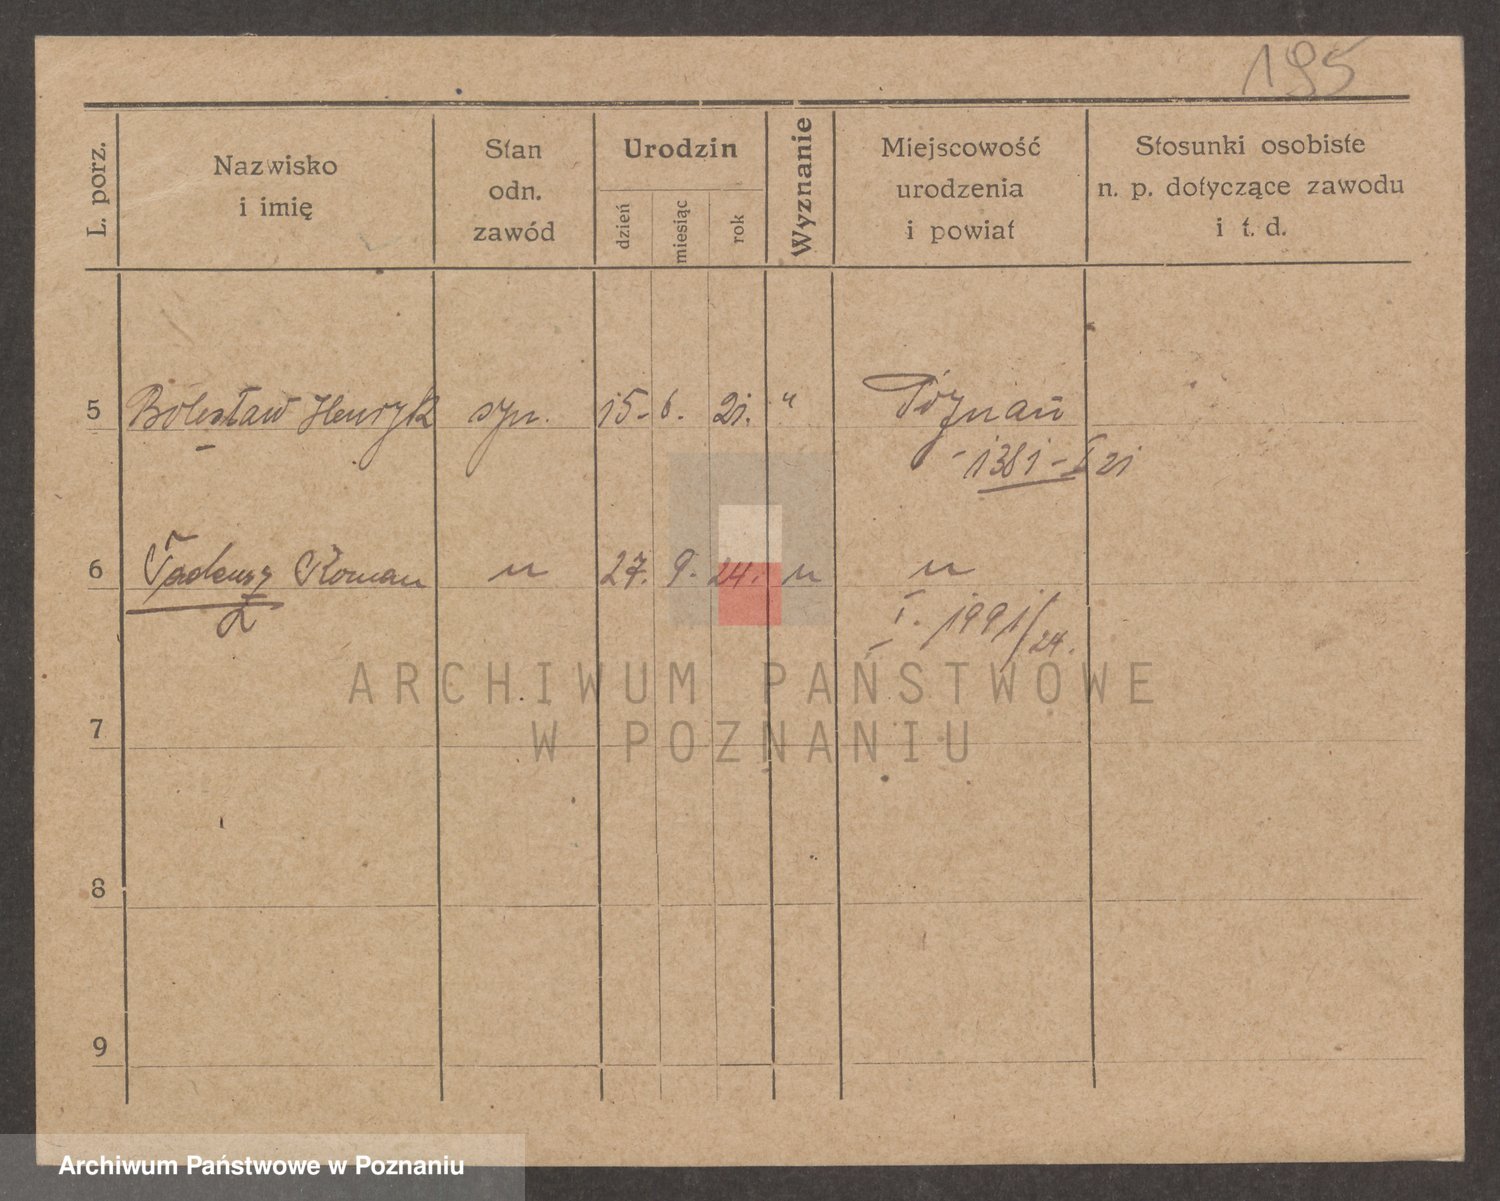 195
L. porz.
Nazwisko
i imię
Stan
odn.
zawód
Urodzin
dzień
miesiąc
rok
Wyznanie
Miejscowość
urodzenia
i powiat
Stosunki osobiste
n. p. dotyczące zawodu
i t. d.
5 Bolesław Henryk syn. 15. 6. 21. " Poznań
- 1381 - I 21
6 Tadeusz Roman " 27. 9. 24. " "
I. 1991/24.
ARCHIWUM PAŃSTWOWE
W POZNANIU
7
8
9
Archiwum Państwowe w Poznaniu